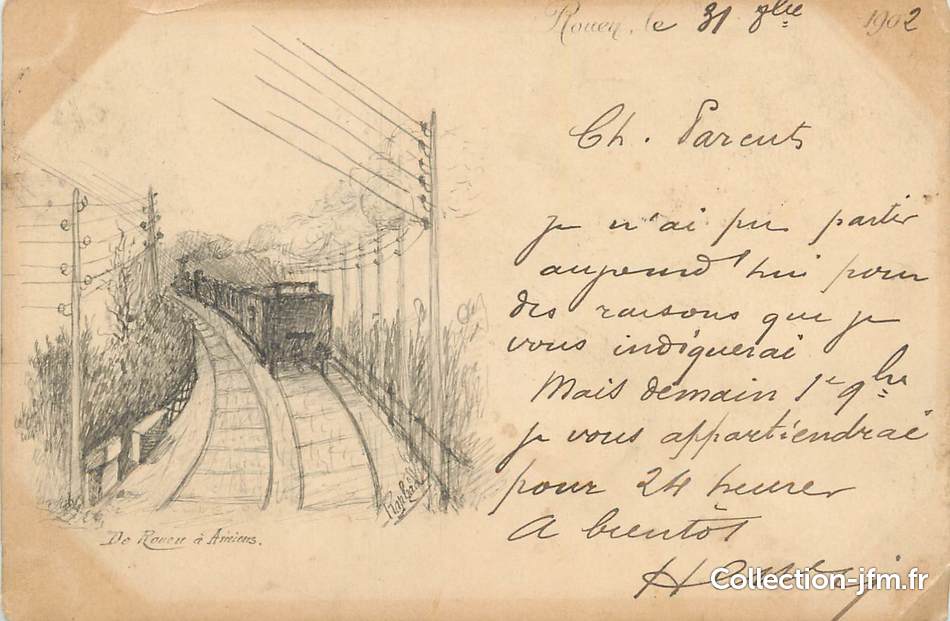 Rouen, le 31 8bre 1902
Ch. Parents
Je n'ai pu partir
aujourd'hui pour
des raisons que je
vous indiquerai
Mais demain 1er 9bre
je vous appartiendrai
pour 24 heures
A bientôt
De Rouen à Amiens.
Collection-jfm.fr